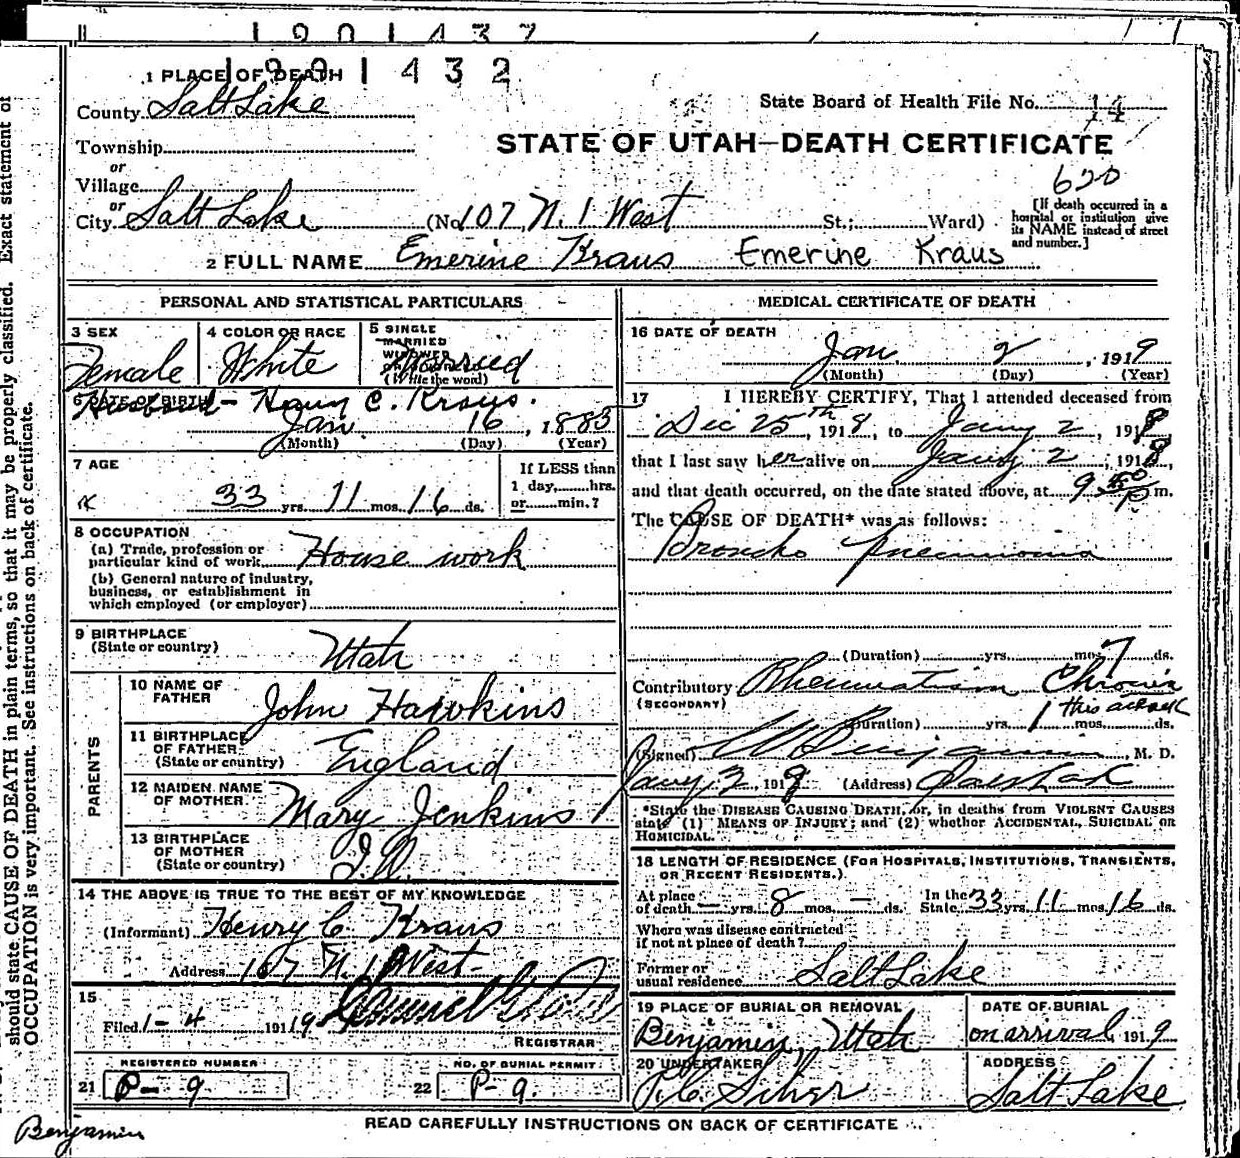 1901437
1901432
1 PLACE OF DEATH
County Salt Lake
State Board of Health File No. 14
Township
or
Village
or
City Salt Lake
STATE OF UTAH—DEATH CERTIFICATE
620
(No 107 N. 1 West St.; Ward)
[If death occurred in a hospital or institution give its NAME instead of street and number.]
2 FULL NAME Emerine Kraus Emerine Kraus
PERSONAL AND STATISTICAL PARTICULARS
3 SEX
Female
4 COLOR OR RACE
White
5 SINGLE
MARRIED
WIDOWED
(Write the word)
Married
6 DATE OF BIRTH
Husband - Henry C. Kraus.
Jan. 16, 1883
(Month) (Day) (Year)
7 AGE
33 yrs. 11 mos. 16 ds.
If LESS than
1 day, hrs.
or min.?
8 OCCUPATION
(a) Trade, profession or
particular kind of work House work
(b) General nature of industry,
business, or establishment in
which employed (or employer)
9 BIRTHPLACE
(State or country)
Utah
PARENTS
10 NAME OF
FATHER
John Hawkins
11 BIRTHPLACE
OF FATHER
(State or country)
England
12 MAIDEN NAME
OF MOTHER
Mary Jenkins
13 BIRTHPLACE
OF MOTHER
(State or country)
14 THE ABOVE IS TRUE TO THE BEST OF MY KNOWLEDGE
(Informant) Henry C. Kraus
Address 107 N. 1 West
15
Filed 1-4 1919
REGISTRAR
REGISTERED NUMBER
21 P- 9
NO. OF BURIAL PERMIT
22 P-9.
MEDICAL CERTIFICATE OF DEATH
16 DATE OF DEATH
Jan. 2, 1919
(Month) (Day) (Year)
17 I HEREBY CERTIFY, That I attended deceased from
Dec 25th, 1918, to Jany 2, 191
that I last saw her alive on Jany 2, 191
and that death occurred, on the date stated above, at 9 P m.
The CAUSE OF DEATH* was as follows:
Broncho Pneumonia
(Duration) yrs. mos. 7 ds.
Contributory Rheumatism Chronic
(SECONDARY)
this attack
(Duration) yrs. 1 mos. ds.
(Signed) W Benjamin M. D.
Jany 3, 1919 (Address) Salt Lak
*State the DISEASE CAUSING DEATH, or, in deaths from VIOLENT CAUSES
state (1) MEANS OF INJURY; and (2) whether ACCIDENTAL, SUICIDAL OR
HOMICIDAL.
18 LENGTH OF RESIDENCE (FOR HOSPITALS, INSTITUTIONS, TRANSIENTS,
OR RECENT RESIDENTS.)
At place
of death — yrs. 8 mos. — ds. In the
State 33 yrs. 11 mos. 16 ds.
Where was disease contracted
if not at place of death?
Former or
usual residence Salt Lake
19 PLACE OF BURIAL OR REMOVAL
Benjamin, Utah
DATE OF BURIAL
on arrival 1919
20 UNDERTAKER
Silver
ADDRESS
Salt Lake
READ CAREFULLY INSTRUCTIONS ON BACK OF CERTIFICATE
should state CAUSE OF DEATH in plain terms, so that it may be properly classified. Exact statement of
OCCUPATION is very important. See instructions on back of certificate.
Benjamin